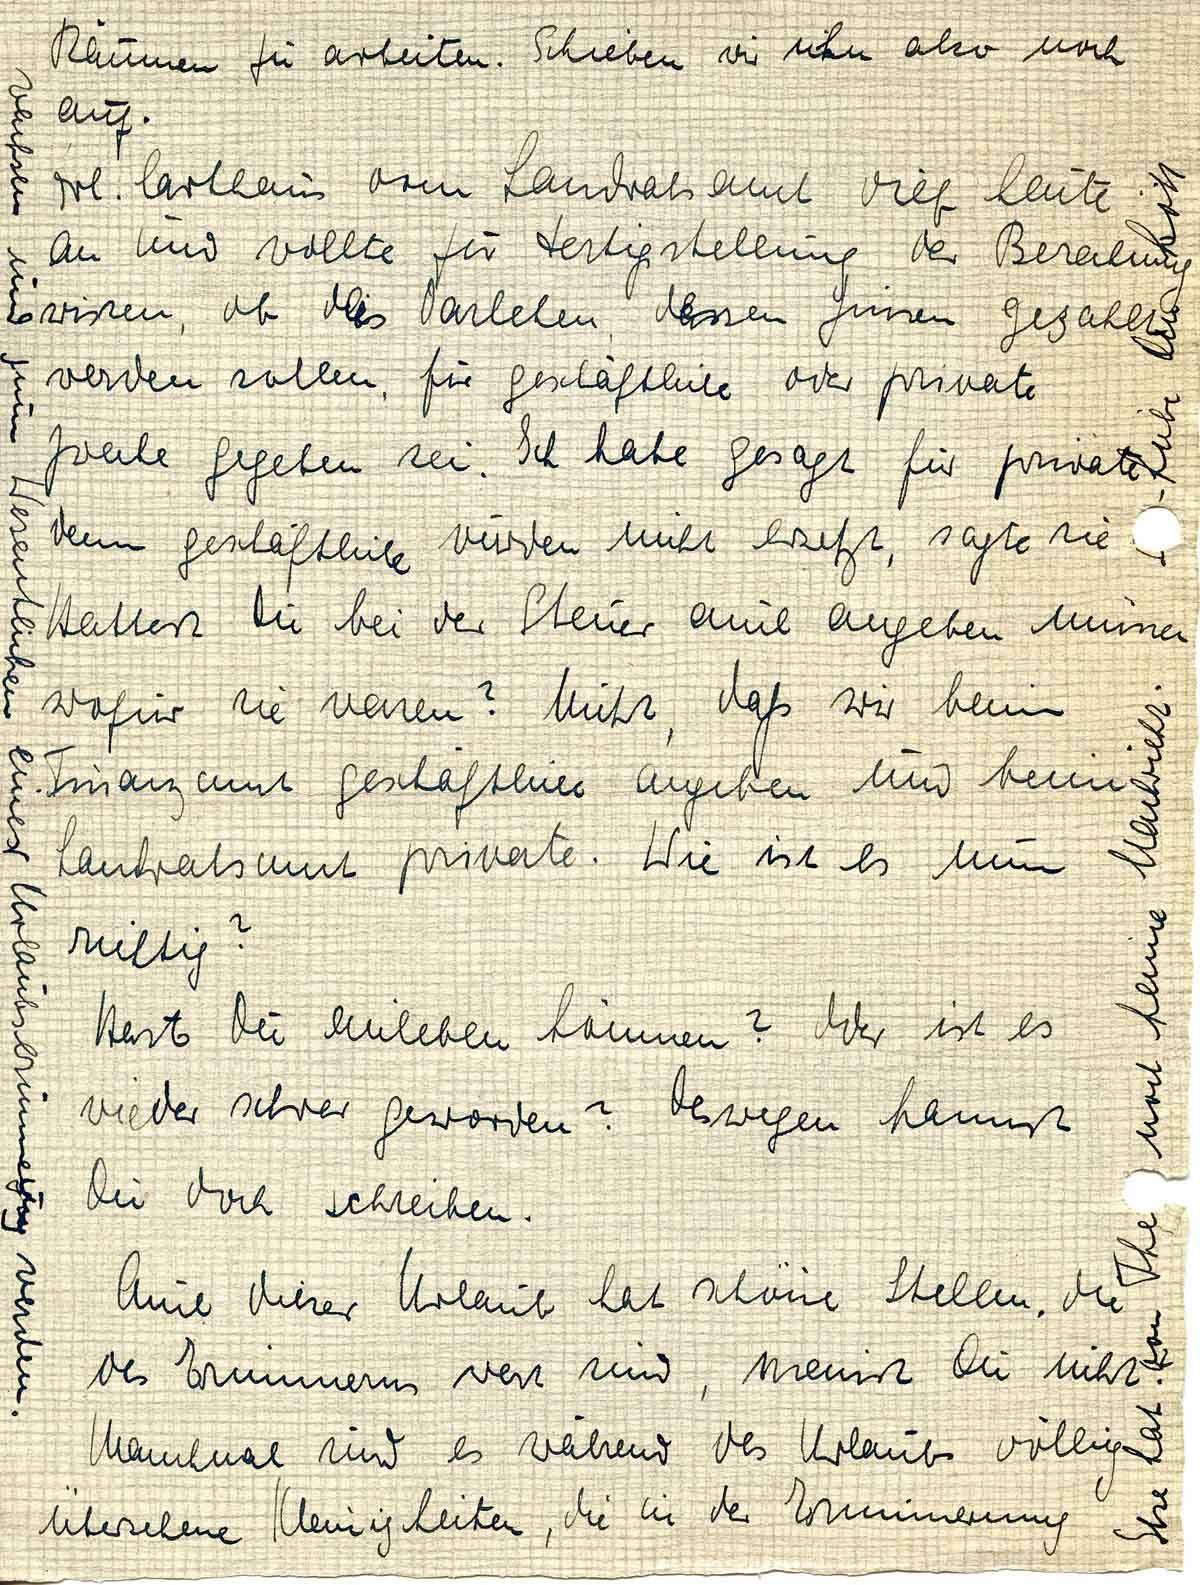 Räumen zu arbeiten. Schieben wir ihn also noch
auf.
Frl. Carthaus vom Landratsamt rief heute
an und wollte zur Fertigstellung der Berechnung
wissen, ob das Darlehen, dessen Zinsen gezahlt
werden sollen, für geschäftliche oder private
Zwecke gegeben sei. Ich habe gesagt für private
denn geschäftliche würden nicht ersetzt, sagte sie
Hattest Du bei der Steuer auch angeben müssen
wofür sie waren? Nicht, daß wir beim
Finanzamt geschäftliche angeben und beim
Landratsamt private. Wie ist es nun
richtig?
Hast Du einleben können? Oder ist es
wieder schwer geworden? Deswegen kannst
Du doch schreiben.
Auch dieser Urlaub hat schöne Stellen, die
des Erinnerns wert sind, meinst Du nicht.
Manchmal sind es während des Urlaubs völlig
übersehene Kleinigkeiten, die in der Erinnerung
wachsen und zum Wesentlichen einer Urlaubserinnerung werden.
hat. von The noch keine Nachricht.